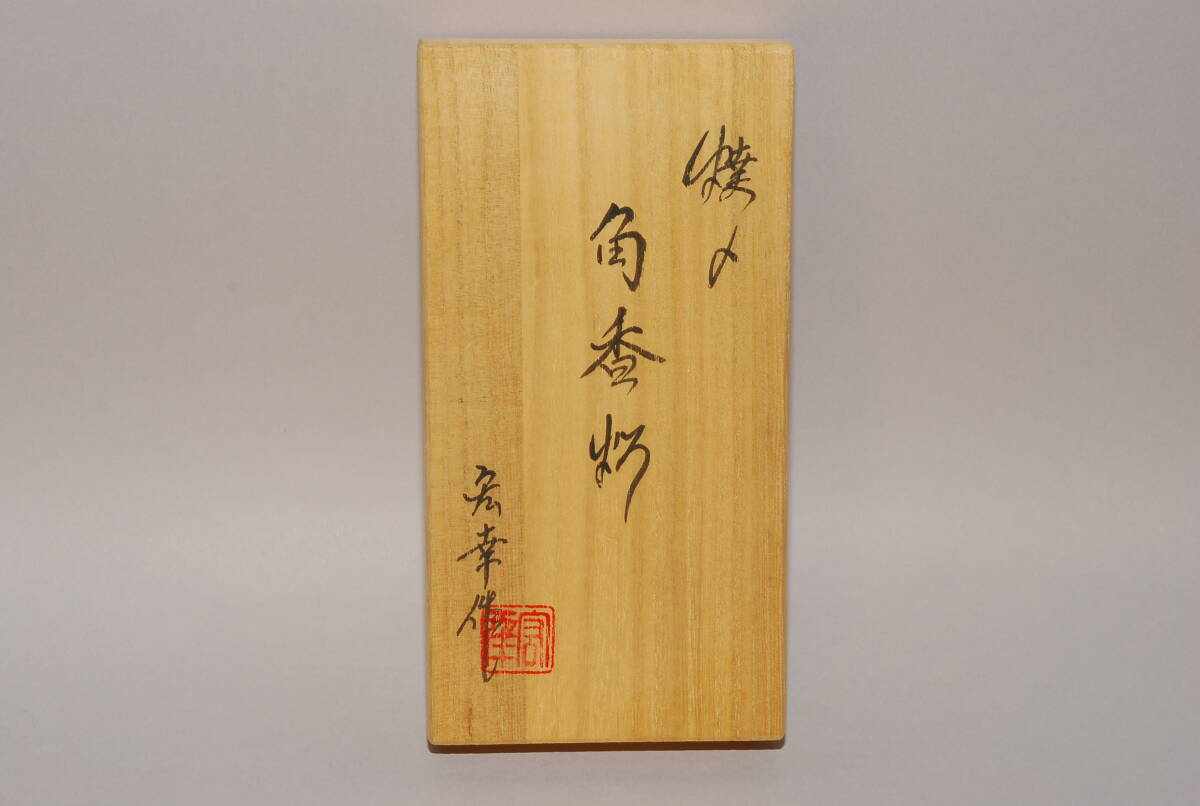 焼〆
角香炉
宏幸作